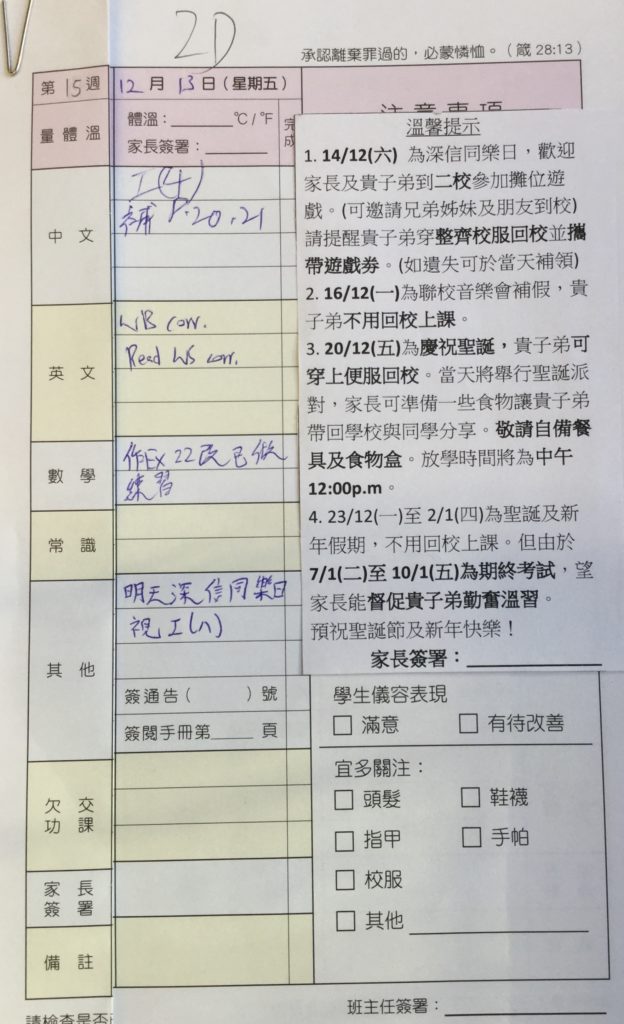 2D
承認離棄罪過的，必蒙憐恤。（箴 28:13）
第15週
12月13日(星期五)
注意事項
量體溫
體溫：______℃/°F
家長簽署：______
完成
中文
工(4)
補 P.20, 21
英文
WB corr.
Read WS corr.
數學
作Ex 22改已做
練習
常識
其他
明天深信同樂日
視工(八)
簽通告（　　）號
簽閱手冊第____頁
欠交功課
家長簽署
備註
溫馨提示
1. 14/12(六) 為深信同樂日，歡迎
家長及貴子弟到二校參加攤位遊
戲。(可邀請兄弟姊妹及朋友到校)
請提醒貴子弟穿整齊校服回校並攜
帶遊戲券。(如遺失可於當天補領)
2. 16/12(一)為聯校音樂會補假，貴
子弟不用回校上課。
3. 20/12(五)為慶祝聖誕，貴子弟可
穿上便服回校。當天將舉行聖誕派
對，家長可準備一些食物讓貴子弟
帶回學校與同學分享。敬請自備餐
具及食物盒。放學時間將為中午
12:00p.m。
4. 23/12(一)至 2/1(四)為聖誕及新
年假期，不用回校上課。但由於
7/1(二)至 10/1(五)為期終考試，望
家長能督促貴子弟勤奮溫習。
預祝聖誕節及新年快樂！
家長簽署：____________
學生儀容表現
□ 滿意　□ 有待改善
宜多關注：
□ 頭髮　□ 鞋襪
□ 指甲　□ 手帕
□ 校服
□ 其他____________
班主任簽署：____________
請檢查是否